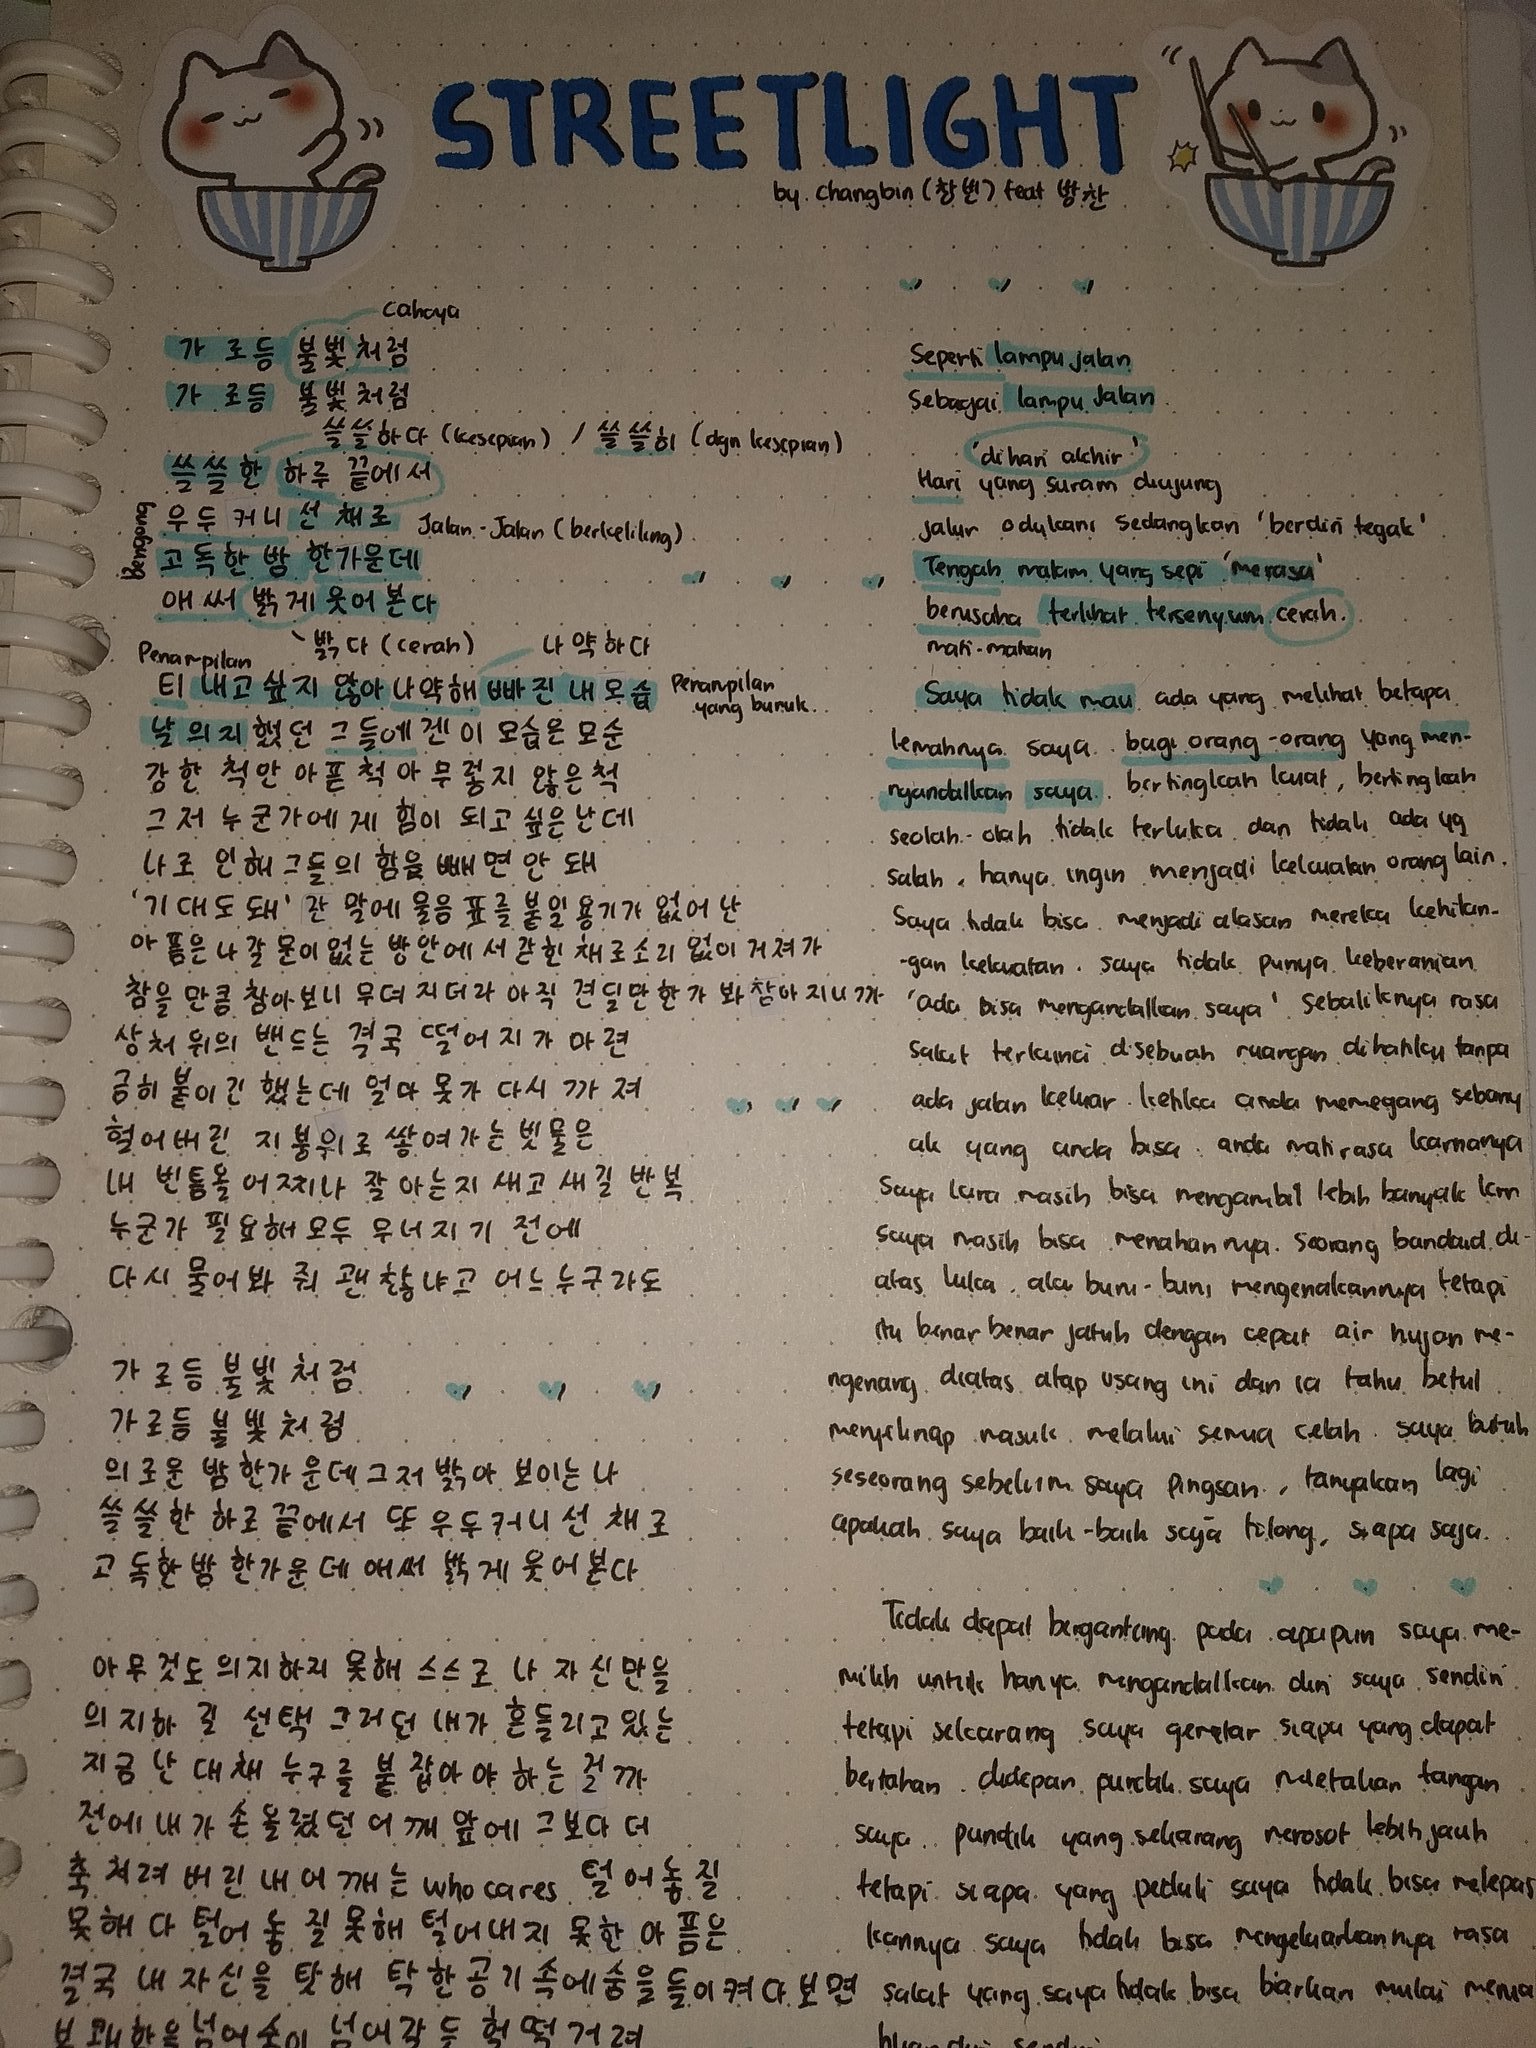 STREETLIGHT
by. Changbin (창빈) feat 방찬
Cahaya
가로등 불빛처럼
가로등 불빛처럼
쓸쓸하다 (kesepian) / 쓸쓸히 (dgn kesepian)
쓸쓸한 하루 끝에서
Bengong
우두커니 선 채로
Jalan-Jalan (berkeliling)
고독한 밤 한가운데
애써 밝게 웃어 본다
밝다 (cerah)
나약하다
Penampilan
티 내고 싶지 않아 나약해 빠진 내 모습
Penampilan
yang buruk.
날 의지했던 그들에겐 이 모습은 모순
강한 척 안 아픈 척 아무렇지 않은 척
그저 누군가에게 힘이 되고 싶은 난데
나로 인해 그들의 힘을 빼면 안 돼
'기대도 돼' 란 말에 물음표를 붙일 용기가 없어 난
아픔은 나갈 문이 없는 방안에서 갇힌 채로 소리 없이 커져가
참을 만큼 참아보니 무뎌지더라 아직 견딜만한가 봐 참아지니까
상처 위의 밴드는 결국 떨어지기 마련
급히 붙이긴 했는데 얼마 못가 다시 까져
헐어버린 지붕위로 쌓여가는 빗물은
내 빈틈을 어찌나 잘 아는지 새고 새길 반복
누군가 필요해 모두 무너지기 전에
다시 물어봐 줘 괜찮냐고 어느 누구라도
가로등 불빛처럼
가로등 불빛처럼
외로운 밤 한가운데 그저 밝아 보이는 나
쓸쓸한 하로 끝에서 또 우두커니 선 채로
고독한 밤 한가운데 애써 밝게 웃어 본다
아무것도 의지하지 못해 스스로 나 자신만을
의지하길 선택 그러던 내가 흔들리고 있는
지금 난 대체 누구를 붙잡아야 하는 걸까
전에 내가 손 올렸던 어깨 앞에 그보다 더
축 쳐려 버린 내 어깨는 who cares 털어놓질
못해 다 털어 놓질 못해 털어내지 못한 아픔은
결국 내 자신을 탓해 탁한 공기 속에 숨을 들이켜다 보면
Seperti lampu jalan
Sebagai lampu jalan
'dihari akhir'
Hari yang suram diujung
jalur odykani sedangkan 'berdiri tegak'
Tengah malam yang sepi 'merasa'
berusaha terlihat tersenyum cerah.
mati-matian
Saya tidak mau ada yang melihat betapa
lemahnya saya. bagi orang-orang yang men-
ngandalkan saya. bertingkah kuat, bertingkah
seolah-olah tidak terluka dan tidak ada yg
salah, hanya ingin menjadi kekuatan orang lain.
Saya tidak bisa menjadi alasan mereka kehilan-
-gan kekuatan. saya tidak punya keberanian
'ada bisa mengandalkan saya' sebaliknya rasa
sakit terkunci disebuah ruangan dihatiku tanpa
ada jalan keluar. ketika anda memegang sebany
ak yang anda bisa. anda mati rasa karnanya
saya kira masih bisa mengambil lebih banyak krn
saya masih bisa menahannya. seorang bandaid di-
atas luka. aku buru-buru mengenakannya tetapi
itu benar benar jatuh dengan cepat air hujan me-
ngenang diatas atap usang ini dan ia tahu betul
menyelinap masuk melalui semua celah. saya butuh
seseorang sebelum saya pingsan, tanyakan lagi
apakah saya baik-baik saja tolong, siapa saja.
Tidak dapat bergantung pada apapun saya me-
milih untuk hanya mengandalkan diri saya sendiri
tetapi sekarang saya gemetar siapa yang dapat
bertahan. didepan pundak saya meletakan tangan
saya.. pundak yang sekarang merosot lebih jauh
tetapi siapa yang peduli saya tidak bisa melepas
kannya saya tidak bisa mengeluarkannya rasa
sakit yang saya tidak bisa biarkan mulai menya